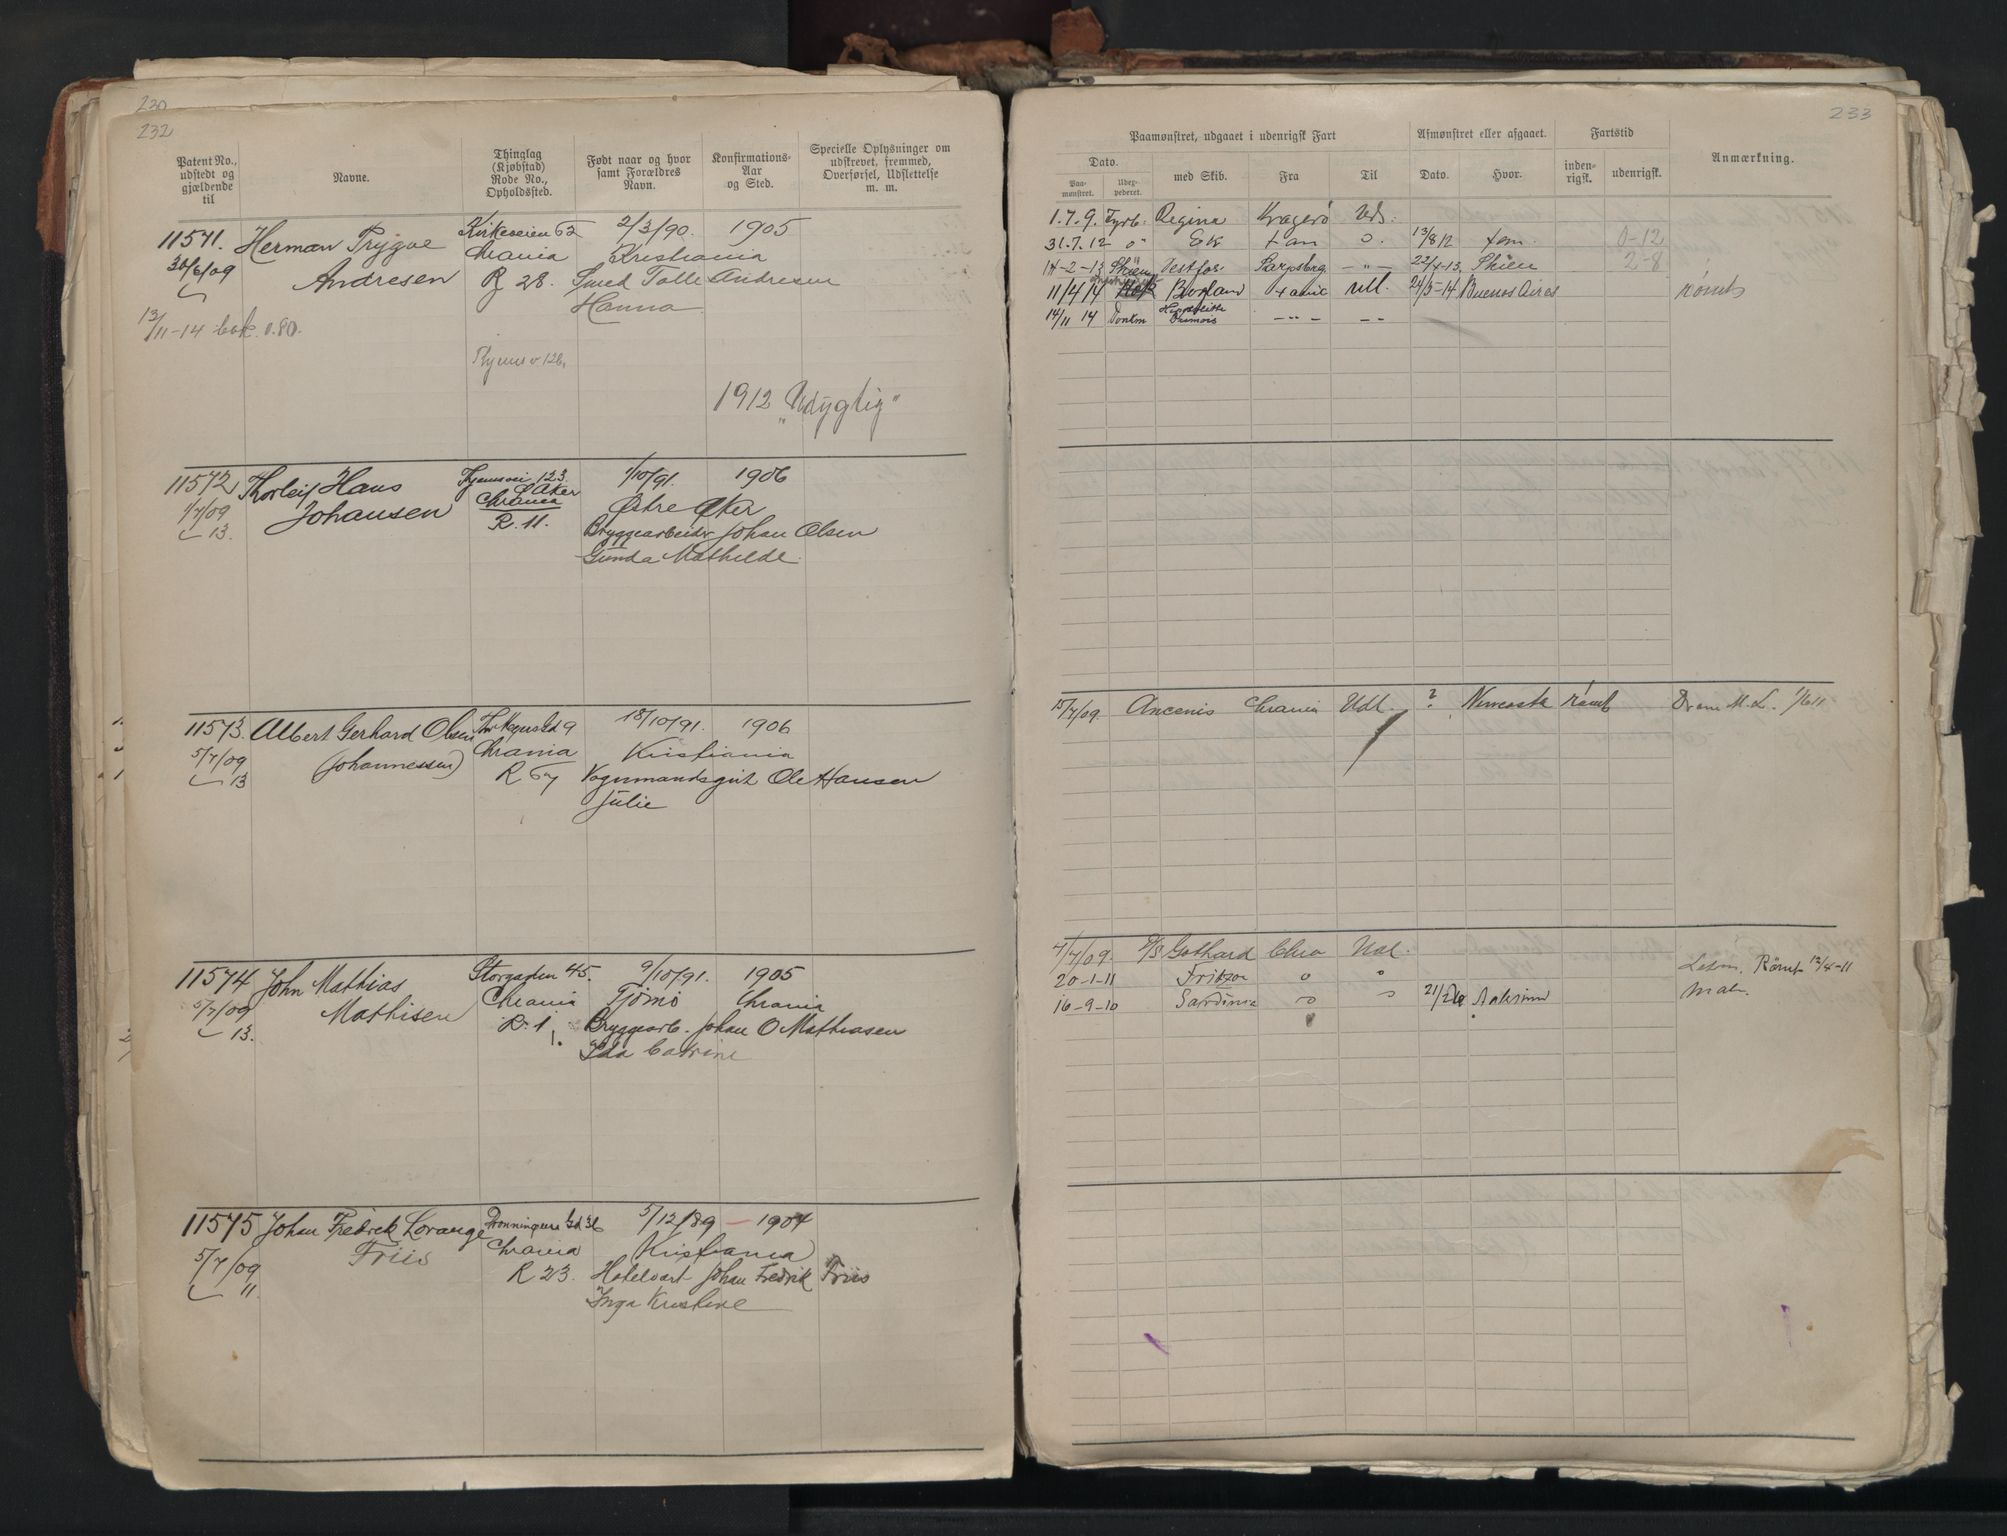 230
232
Patent No., udstedt og gjældende til
Navne.
Thinglag (Kjøbstad) Rode No., Opholdssted.
Født naar og hvor samt Forældres Navn.
Konfirmations-Aar og Sted.
Specielle Oplysninger om udskrevet, fremmed, Overførsel, Udslettelse m. m.
11571. Herman Trygve Kirkeveien 62 2/3/90. 1905
30/6/09 Andresen Chrania Kristiania
R 28. Smed Tolle Andresen
Hanna
13/11-14 bok. 0.80.
1912 "Udygtig"
11572 Thorleif Hans 123 1/10/91. 1906
1/7/09 Johansen Chrania Aker Østre Aker
13. R. 11. Bryggearbeider Johan Olsen
Gunda Mathilde.
11573. Albert Gerhard Olsen 18/10/91. 1906
5/7/09 (Johannessen) Chrania Kristiania
13 R 67 Vognmandsgut Ole Hansen
Julie
11574 John Mathias Storgaden 45. 9/10/91. 1905
5/7/09 Mathisen Chrania Tjømø Chrania
13. R. 1. Bryggearb. Johan O Mathiasen
Ida Catrine
11575 Johan Fredrek Lorange Dronningens Gd 36 5/12/89 – 1904
5/7/09 Friis Chrania Kristiania
11. R 23. Hotelvært Johan Fredrik Friis
Inga Kristine
233
Paamønstret, udgaaet i udenrigsk Fart
Afmønstret eller afgaaet.
Fartstid
Anmærkning.
Dato.
Paa-mønstret.
Udex-pederet.
med Skib.
Fra
Til
Dato.
Hvor.
inden-rigsk.
udenrigsk.
1.7.9. Fyrb. Regina Kragerø Uds.
31.7.12 o" Ek o. 13/8 12 0-12
14-2-13 Skien Vestfos Sarpsborg – " – 22/4-13. Skien 2-8
11/4 14 Borland Udl. 24/5-14 Buenos Aires rømt
14/11 14 Donkm – " – – –
15/7/09. Ancenis Chrania Udl. ? Newcastle rømt Dram M.L. 1/6 11
7/7/09. D/S Gothard Chra Udl.
20-1-11 Fritzoe o o Rømt 12/4-11
16-9-10 Sardinia o o